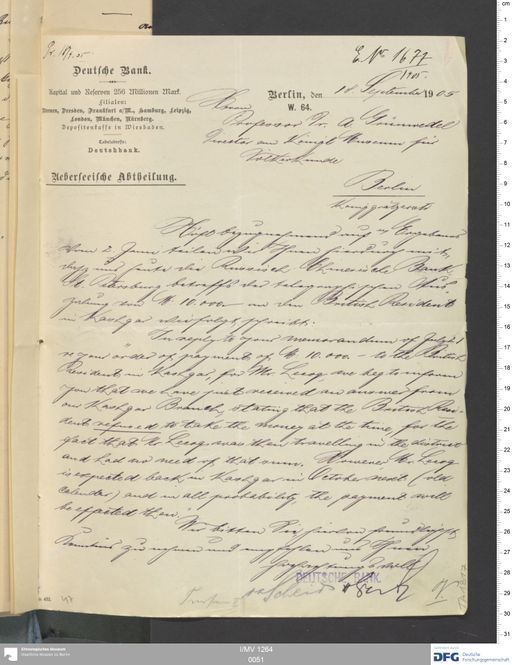 Pr. 18/9. 05
E. No 1677
1905.
Deutsche Bank.
Kapital und Reserven 256 Millionen Mark.
Filialen:
Bremen, Dresden, Frankfurt a/M., Hamburg, Leipzig,
London, München, Nürnberg.
Depositenkasse in Wiesbaden.
Telegrammadresse:
Deutschbank.
Ueberseeische Abtheilung.
Berlin, den 18 September 1905
W. 64.
Herrn
Professor Dr. A. Grünwedel
Director am Königl. Museum für
Völkerkunde
Berlin
Höfl. bezugnehmend auf Ergebenes
vom 2 Juni teilen wir Ihnen hierdurch mit,
dass uns heute die Russisch Chinesische Bank,
St. Petersburg betreffs der telegraphischen Aus-
zahlung von M. 10.000.- an den British Resident
in Kashgar wie folgt schreibt:
"In reply to your memorandum of
re your order of payment of M. 10.000.- to the British
Resident in Kashgar, for Mr. Lecoq, we beg to inform
you that we have just received an answer from
our Kashgar Branch, stating that the British Resi-
dent refused to take the money at the time, for the
fact that Mr Lecoq was then travelling in the district
and had no need of that sum. However Mr. Lecoq
is expected back in Kashgar in October next (old
calendar) and in all probability the payment will
be effected then."
Wir bitten Sie hiervon freundlichst
Kenntnis zu nehmen und empfehlen uns Ihnen
hochachtungsvoll
DEUTSCHE BANK.
I/MV 1264
0051
Ethnologisches Museum
Staatliche Museen zu Berlin
DFG Deutsche
Forschungsgemeinschaft